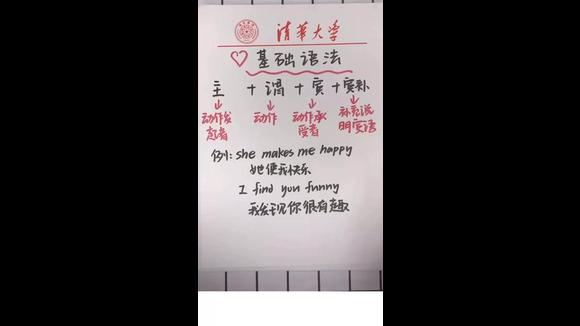 清华大学
基础语法
主 + 谓 + 宾 + 宾补
动作发起者 动作 动作承受者 补充说明宾语
例: she makes me happy
她使我快乐
I find you funny
我发现你很有趣